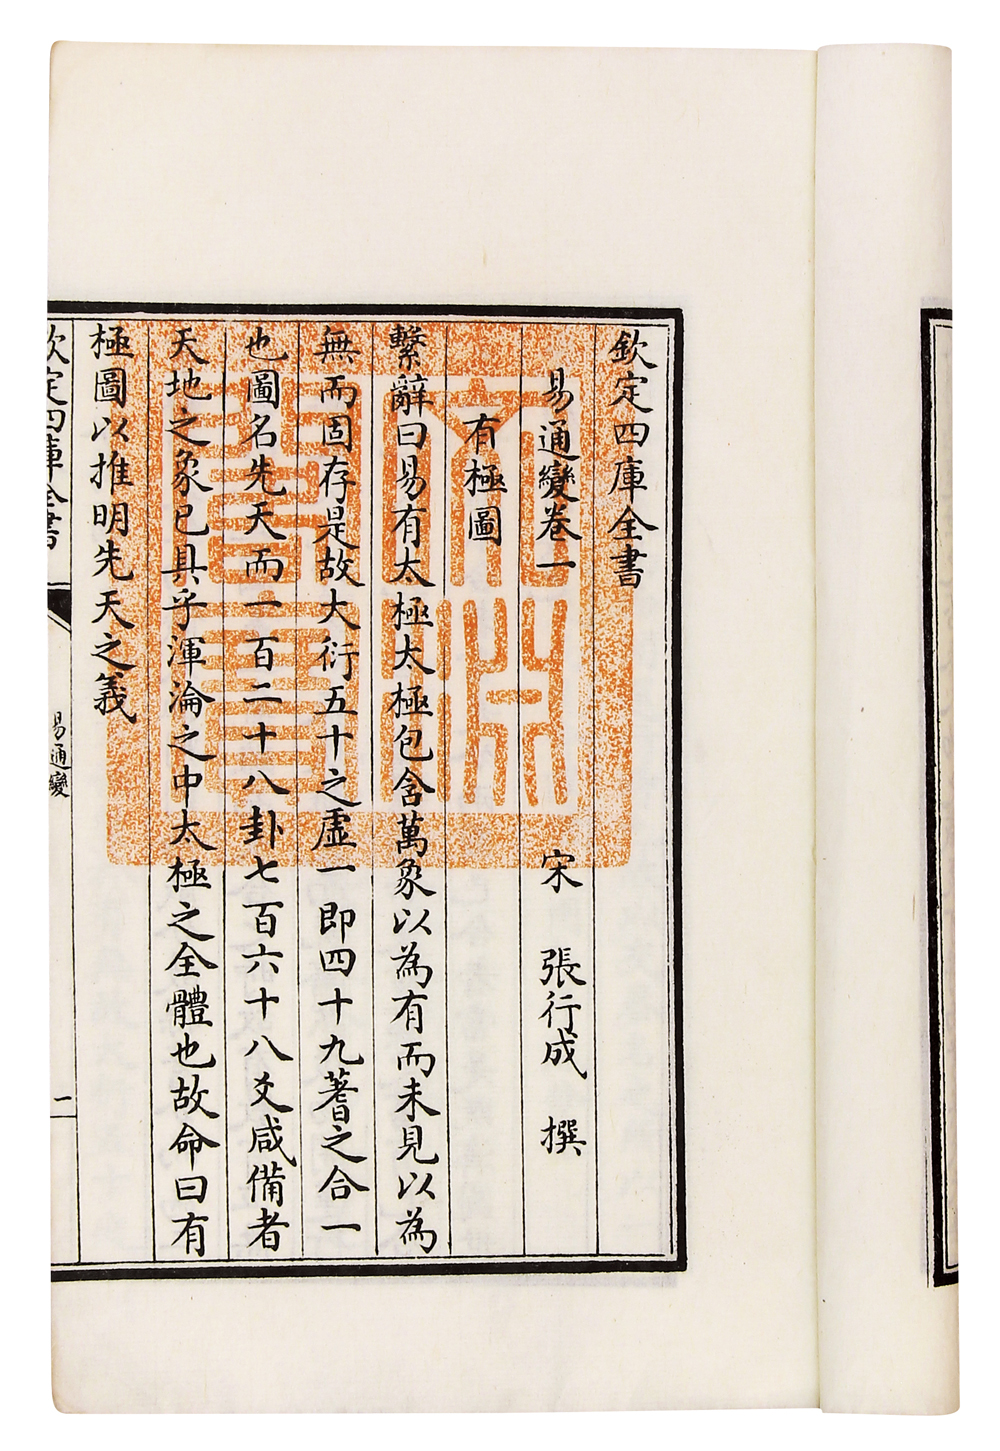 欽定四庫全書
易通變卷一 宋 張行成 撰
有極圖
繫辭曰易有太極太極包含萬象以為有而未見以為
無而固存是故大衍五十之虛一即四十九蓍之合一
也圖名先天而一百二十八卦七百六十八爻咸備者
天地之象已具乎渾淪之中太極之全體也故命曰有
極圖以推明先天之義
欽定四庫全書
易通變
一
文淵閣寶